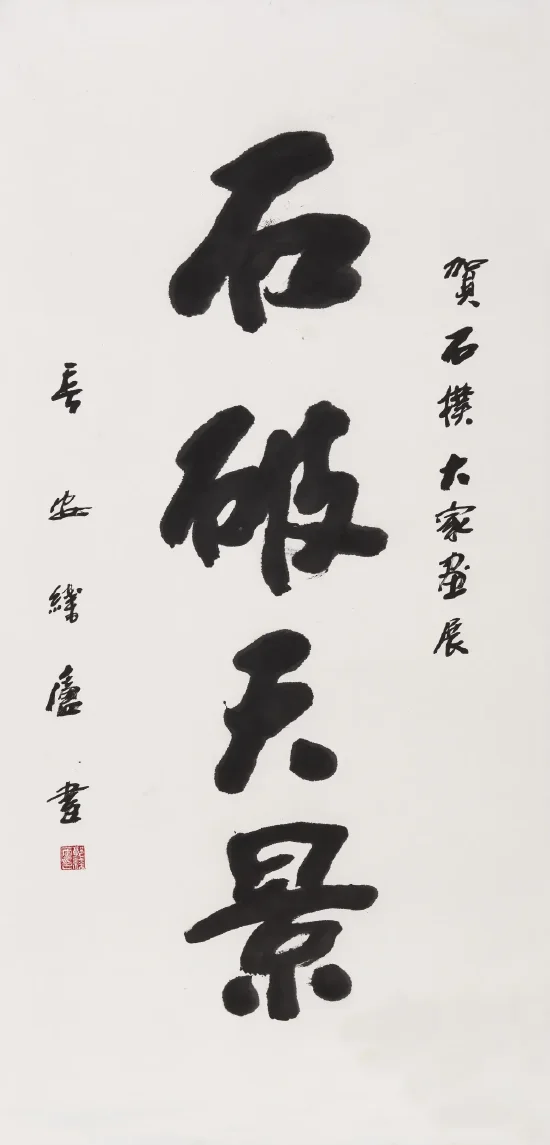 賀石樸大家畫展
石破天景
長安廬書